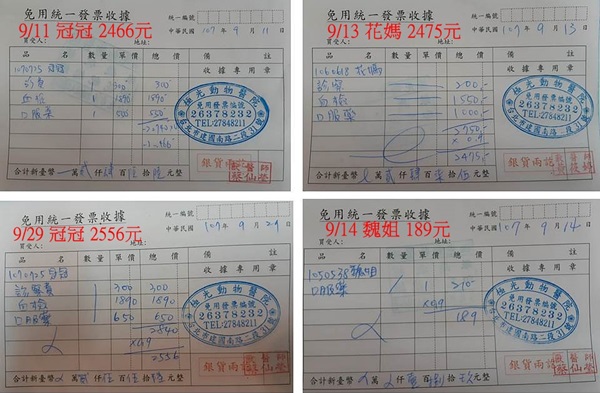 免用統一發票收據
統一編號
9/11 冠冠 2466元
中華民國 107 年 9 月 11 日
買受人: 地址:
品名 數量 單價 總價 備註
收據專用章
1070925 冠冠
診費 1 300 300
血檢 1 1890 1890
口服藥 1 550 550
極光動物醫院
免用發票編號
26378232
TEL:27848211
台北市建國南路二段31號
銀貨兩訖
合計新臺幣 萬 貳 仟 肆 佰 陸 拾 陸 元整
免用統一發票收據
統一編號
9/13 花媽 2475元
中華民國 107 年 9 月 13 日
買受人: 地址:
品名 數量 單價 總價 備註
收據專用章
1060618 花媽
診察 200
血檢 1550
口服藥 1000
2750
× 0.9
2475
極光動物醫院
免用發票編號
26378232
TEL:27848211
台北市建國南路二段31號
銀貨兩訖
合計新臺幣 萬 貳 仟 肆 佰 柒 拾 伍 元整
免用統一發票收據
統一編號
9/29 冠冠 2556元
中華民國 107 年 9 月 29 日
買受人: 地址:
品名 數量 單價 總價 備註
收據專用章
1070925 冠冠
診察費 1 300 300
血檢 1 1890 1890
口服藥 1 650 650
2840
×0.9
2556
極光動物醫院
免用發票編號
26378232
TEL:27848211
台北市建國南路二段31號
銀貨兩訖
合計新臺幣 萬 貳 仟 伍 佰 伍 拾 陸 元整
免用統一發票收據
統一編號
9/14 魏姐 189元
中華民國 107 年 9 月 14 日
買受人: 地址:
品名 數量 單價 總價 備註
收據專用章
1050538 魏姐
口服藥 1 210
×0.9
189
極光動物醫院
免用發票編號
26378232
TEL:27848211
台北市建國南路二段31號
銀貨兩訖
合計新臺幣 萬 仟 壹 佰 捌 拾 玖 元整